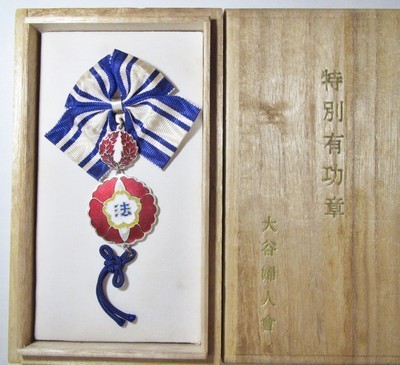 特別有功章
大谷婦人會
法